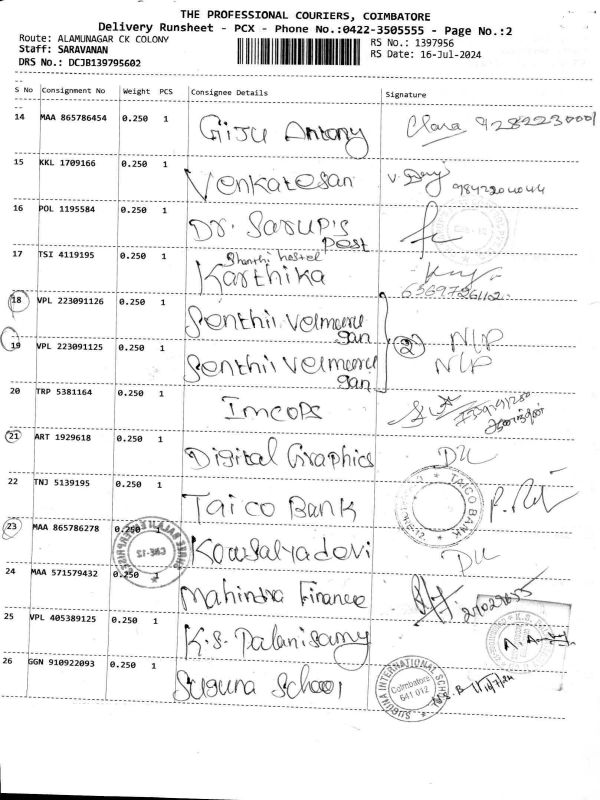 THE PROFESSIONAL COURIERS, COIMBATORE
Delivery Runsheet - PCX - Phone No.:0422-3505555 - Page No.:2
Route: ALAMUNAGAR CK COLONY RS No.: 1397956
Staff: SARAVANAN RS Date: 16-Jul-2024
DRS No.: DCJB139795602
S No Consignment No Weight PCS Consignee Details Signature
14 MAA 865786454 0.250 1 Giju Antony Clara 9282230001
15 KKL 1709166 0.250 1 Venkatesan 9842204044
16 POL 1195584 0.250 1 Dr. Sarup's
post
17 TSI 4119195 0.250 1 Shanthi hostel
Karthika
18 VPL 223091126 0.250 1 Senthil Velmuru
gan NLP
19 VPL 223091125 0.250 1 Senthil Velmuru
gan 2 NLP
20 TRP 5381164 0.250 1 Imcops
21 ART 1929618 0.250 1 Digital Graphics DL
22 TNJ 5139195 0.250 1 Taico Bank TAICO BANK
23 MAA 865786278 0.250 1 Kowsalyadevi DL
CBE-12
24 MAA 571579432 0.250 1 Mahindra Finance
25 VPL 405389125 0.250 1 K.S. Palanisamy
26 GGN 910922093 0.250 1 Suguna School SUGUNA INTERNATIONAL SCHOOL
Coimbatore
641 012